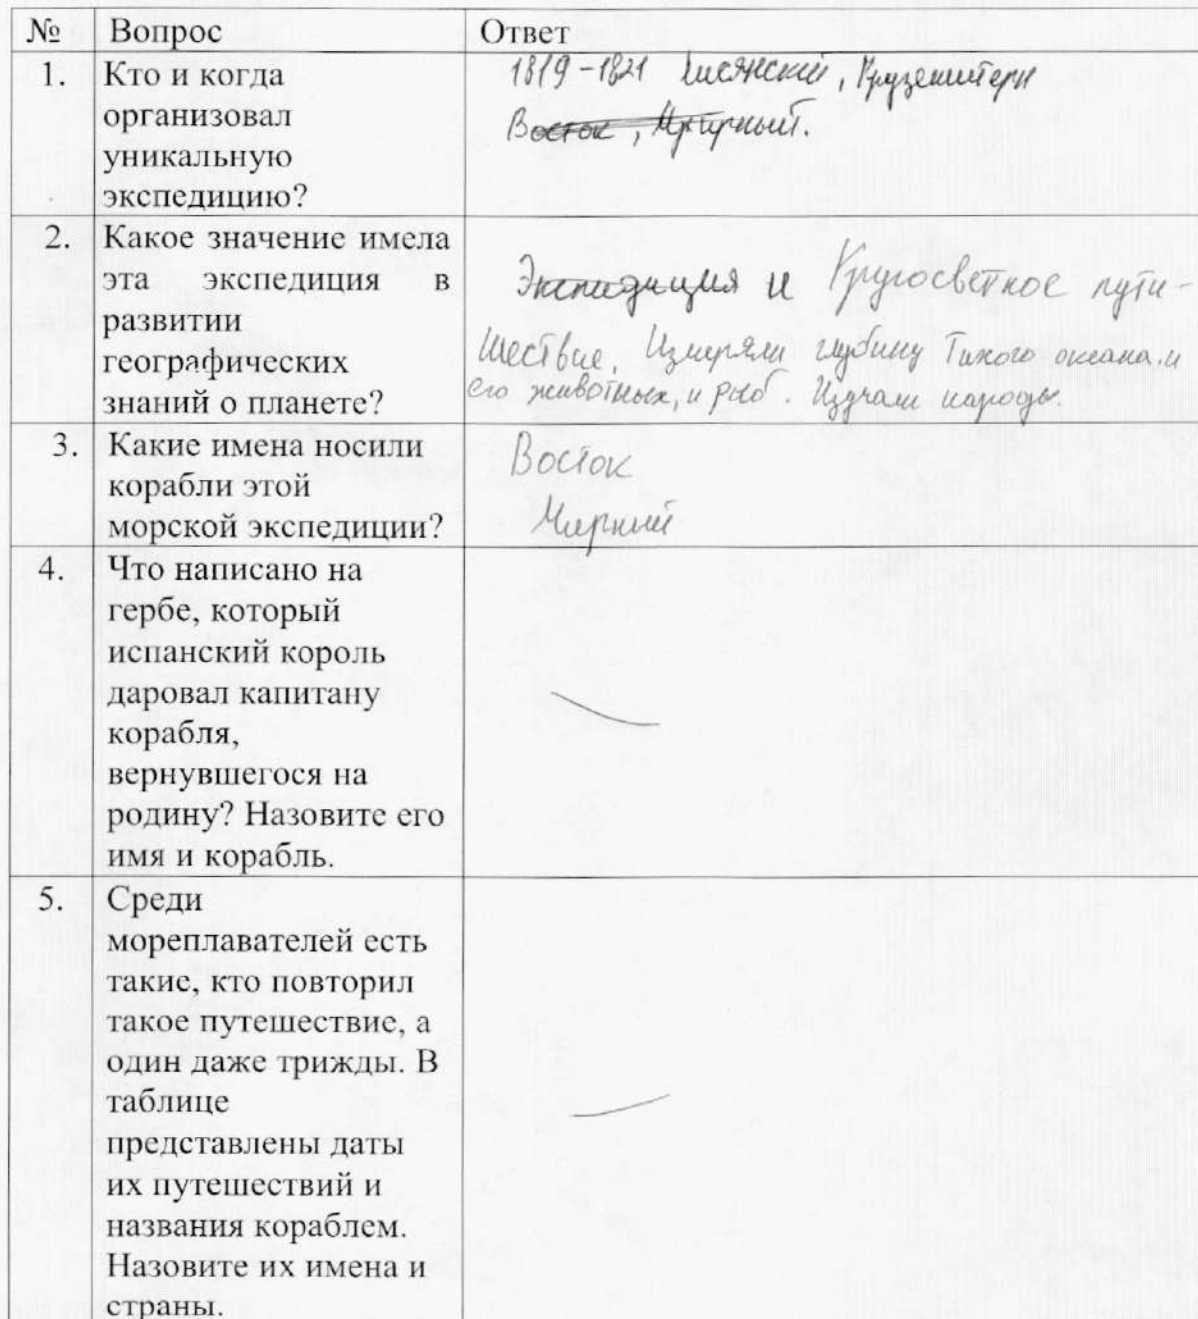 № Вопрос Ответ
1. Кто и когда
организовал
уникальную
экспедицию?
1819-1821 Лисянский, Крузенштерн
Восток, Мирный.
2. Какое значение имела
эта экспедиция в
развитии
географических
знаний о планете?
Экспидиция и Кругосветное пути-
шествие. Измеряли глубину Тихого океана и
его животных, и рыб. Изучали народы.
3. Какие имена носили
корабли этой
морской экспедиции?
Восток
Мирный
4. Что написано на
гербе, который
испанский король
даровал капитану
корабля,
вернувшегося на
родину? Назовите его
имя и корабль.
5. Среди
мореплавателей есть
такие, кто повторил
такое путешествие, а
один даже трижды. В
таблице
представлены даты
их путешествий и
названия кораблем.
Назовите их имена и
страны.